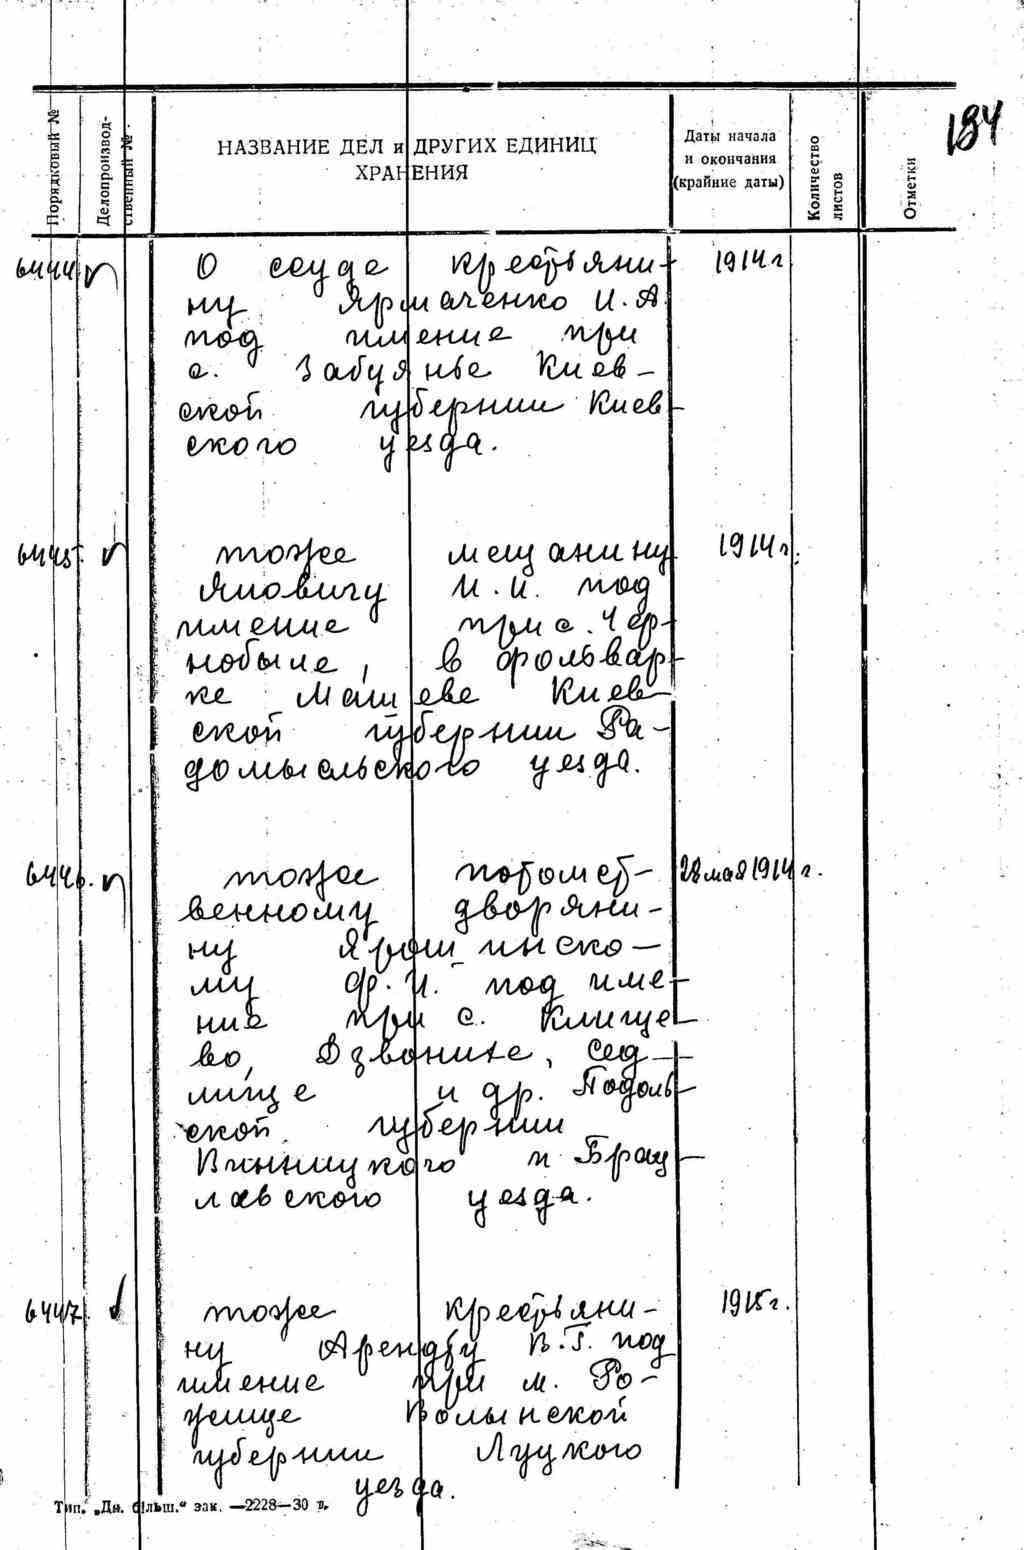 184
Порядковый №
Делопроизвод-
ственный №
НАЗВАНИЕ ДЕЛ и ДРУГИХ ЕДИНИЦ
ХРАНЕНИЯ
Даты начала
и окончания
(крайние даты)
Количество
листов
Отметки
6444 О ссуде крестьяни- 1914 г
ну Ярмаченко И.А
под имение при
с. Забуянье Киев-
ской губернии Киев-
ского уезда.
6445. тоже мещанину 1914 г.
Яновичу И.И. под
имение при с. Чер-
нобыле, в фольвар-
ке Машеве Киев-
ской губернии Ра-
домысльского уезда.
6446. тоже потомст- 28 мая 1914 г.
венному дворяни-
ну Ярошинско-
му Ф.И. под име-
ние при с. Клище-
во, Дзвонихе, Сед-
лище и др. Подоль-
ской губернии
Винницкого и Брац-
лавского уезда.
6447. тоже крестьяни- 1915 г.
ну Арендту В.Г. под
имение при м. Ро-
жище Волынской
губернии Луцкого
уезда.
Тип. „Дн. більш.“ зак. —2228—30 р.